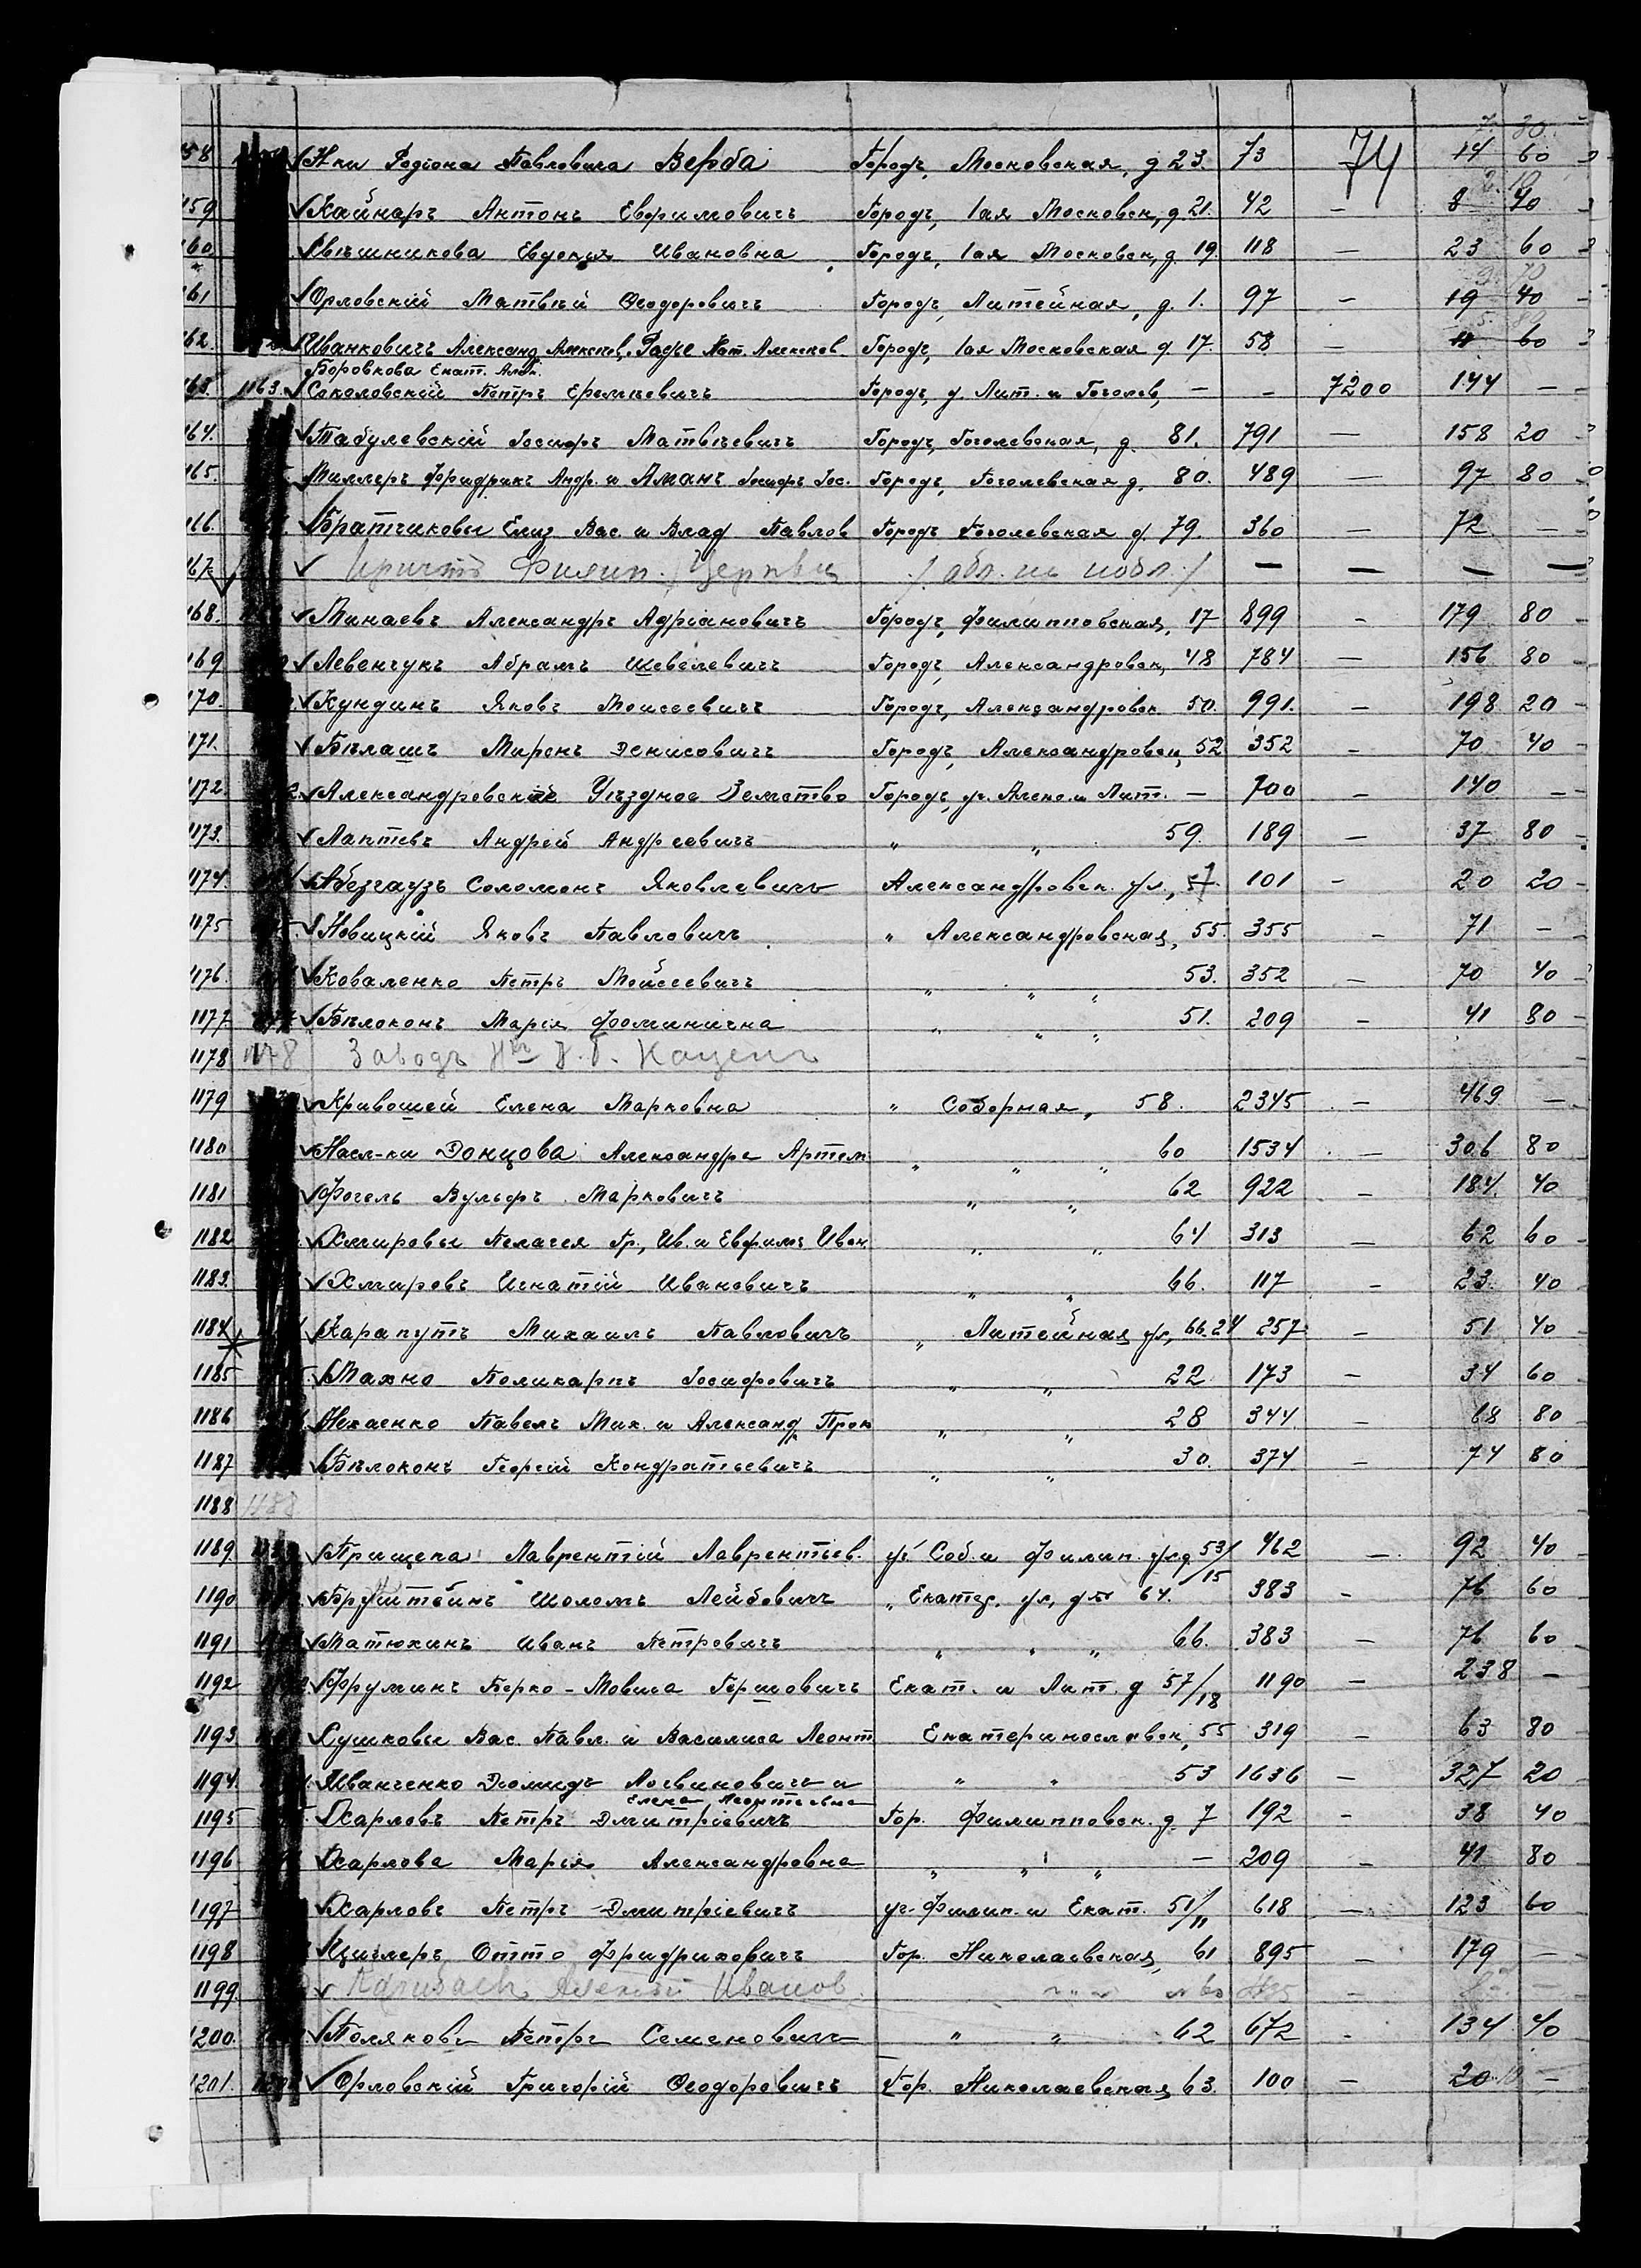 7. 30.
58 Н-ки Родіона Павловича Верба Городъ, Московская, д 23. 73 74 14 60
2. 10
159 Кайнаръ Антонъ Евфимовичъ Городъ, 1ая Московск, д. 21. 42 — 8 40
160 Свѣшникова Евдокія Ивановна Городъ, 1ая Московск, д. 19. 118 — 23 60
9. 70
161 Орловскій Матвѣй Ѳеодоровичъ Городъ, Литейная, д. 1. 97 — 19 40
5. 80
162. Иванковичъ Александ. Алексѣев, Нат. Алексѣев. Городъ, 1ая Московская д. 17. 58 — 11 60
Боровкова Екат. Алек.
163. 1163. Соколовскій Петръ Еремѣевичъ Городъ, у. Лит. и Гоголев, — — 7200 144 —
164. Табулевскій Іосифъ Матвѣевичъ Городъ, Гоголевская, д. 81. 791 — 158 20
165. Миллеръ Фридрихъ Андр. и Аманъ Іосифъ Іос. Городъ, Гоголевская д. 80. 489 — 97 80
116. Братчиковы Елиз Вас. и Влад Павлов Городъ Гоголевская д. 79. 360 — 72 —
167 Причтъ Филип. Церкви — — — —
168. Минаевъ Александръ Адріановичъ Городъ, Филипповская, 17 899 — 179 80
169 Левенчукъ Абрамъ Шевелевичъ Городъ, Александровск, 48 784 — 156 80
170. Кундинъ Яковъ Моисеевичъ Городъ, Александровск 50. 991. — 198 20
171. Бѣлашъ Миронъ Денисовичъ Городъ, Александровск, 52 352 — 70 40
1172. Александровское Уѣздное Земство Городъ, уг. Алекс. и Лит. — 700 — 140 —
1173. Лаптевъ Андрей Андреевичъ " " 59. 189 — 37 80
1174. Абезгаузъ Соломонъ Яковлевичъ Александровск. ул., 57. 101 — 20 20
1175 Новицкій Яковъ Павловичъ " Александровская, 55. 355 — 71 —
1176. Коваленко Петръ Мойсеевичъ " " " 53. 352 — 70 40
1177 Бѣлоконь Марія Фоминична " " " 51. 209 — 41 80
1178 1178 Заводъ Н-ковъ Кацень
1179 Кривошей Елена Марковна " Соборная, 58. 2345 — 469 —
1180 Насл-ки Донцова Александра Артем " " " 60 1534 — 306 80
1181 Фогель Вульфъ Марковичъ " " 62 922 — 184. 40
1182 Хмировы Пелагея Гр., Ив. и Евфимъ Иван. " " 64 313 — 62 60
1183. Хмировъ Игнатій Ивановичъ " " 66. 117 — 23. 40
1184 Карапутъ Михаилъ Павловичъ " Литейная ул, 66.24 257 — 51 40
1185 Махно Поликарпъ Іосифовичъ " " 22 173 — 34 60
1186 Нехаенко Павелъ Мих. и Александ. Прок " " 28 344 — 68 80
1187 Бѣлоконь Георгій Кондратьевичъ " " 30. 374 — 74 80
1188 1188
1189. Прищепа Лаврентій Лаврентьев. уг. Соб. и Филип. ул д 53/15 462 — 92 40
1190 Бронштейнъ Шоломъ Лейбовичъ " Екатер. ул, д № 64. 383 — 76 60
1191 Матюхинъ Иванъ Петровичъ " " " 66. 383 — 76 60
1192 Фруминъ Берко-Мовша Гершовичъ Екат. и Лит. д 57/18 1190 — 238 —
1193 Сушковы Вас. Павл. и Василиса Леонт Екатеринославск, 55 319 — 63 80
1194. Иванченко Діомидъ Логвиновичъ и " " 53 1636 — 327 20
Елена Леонтьевна
1195 Харловъ Петръ Дмитріевичъ Гор. Филипповск. д. 7 192 — 38 40
1196 Харлова Марія Александровна " " " — 209 — 41 80
1197 Харловъ Петръ Дмитріевичъ уг. Филип. и Екат. 51/11 618 — 123 60
1198 Циглеръ Отто Фридриховичъ Гор. Николаевская, 61 895 — 179 —
1199. Алексѣй Иванов. " " —
1200. Поляковъ Петръ Семеновичъ " " 62 672 — 134 40
1201. Орловскій Григорій Ѳеодоровичъ Гор. Николаевская 63. 100 — 20 —